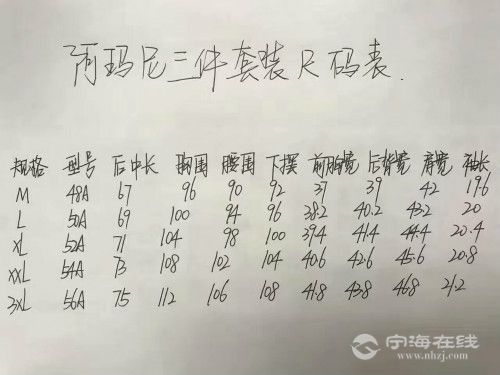 阿玛尼三件套装尺码表.
规格 型号 后中长 胸围 腰围 下摆 前胸宽 后背宽 肩宽 袖长
M 48A 67 96 90 92 37 39 42 19.6
L 50A 69 100 94 96 38.2 40.2 43.2 20
XL 52A 71 104 98 100 39.4 41.4 44.4 20.4
XXL 54A 73 108 102 104 40.6 42.6 45.6 20.8
3XL 56A 75 112 106 108 41.8 43.8 46.8 21.2
宁海在线
www.nhzj.com